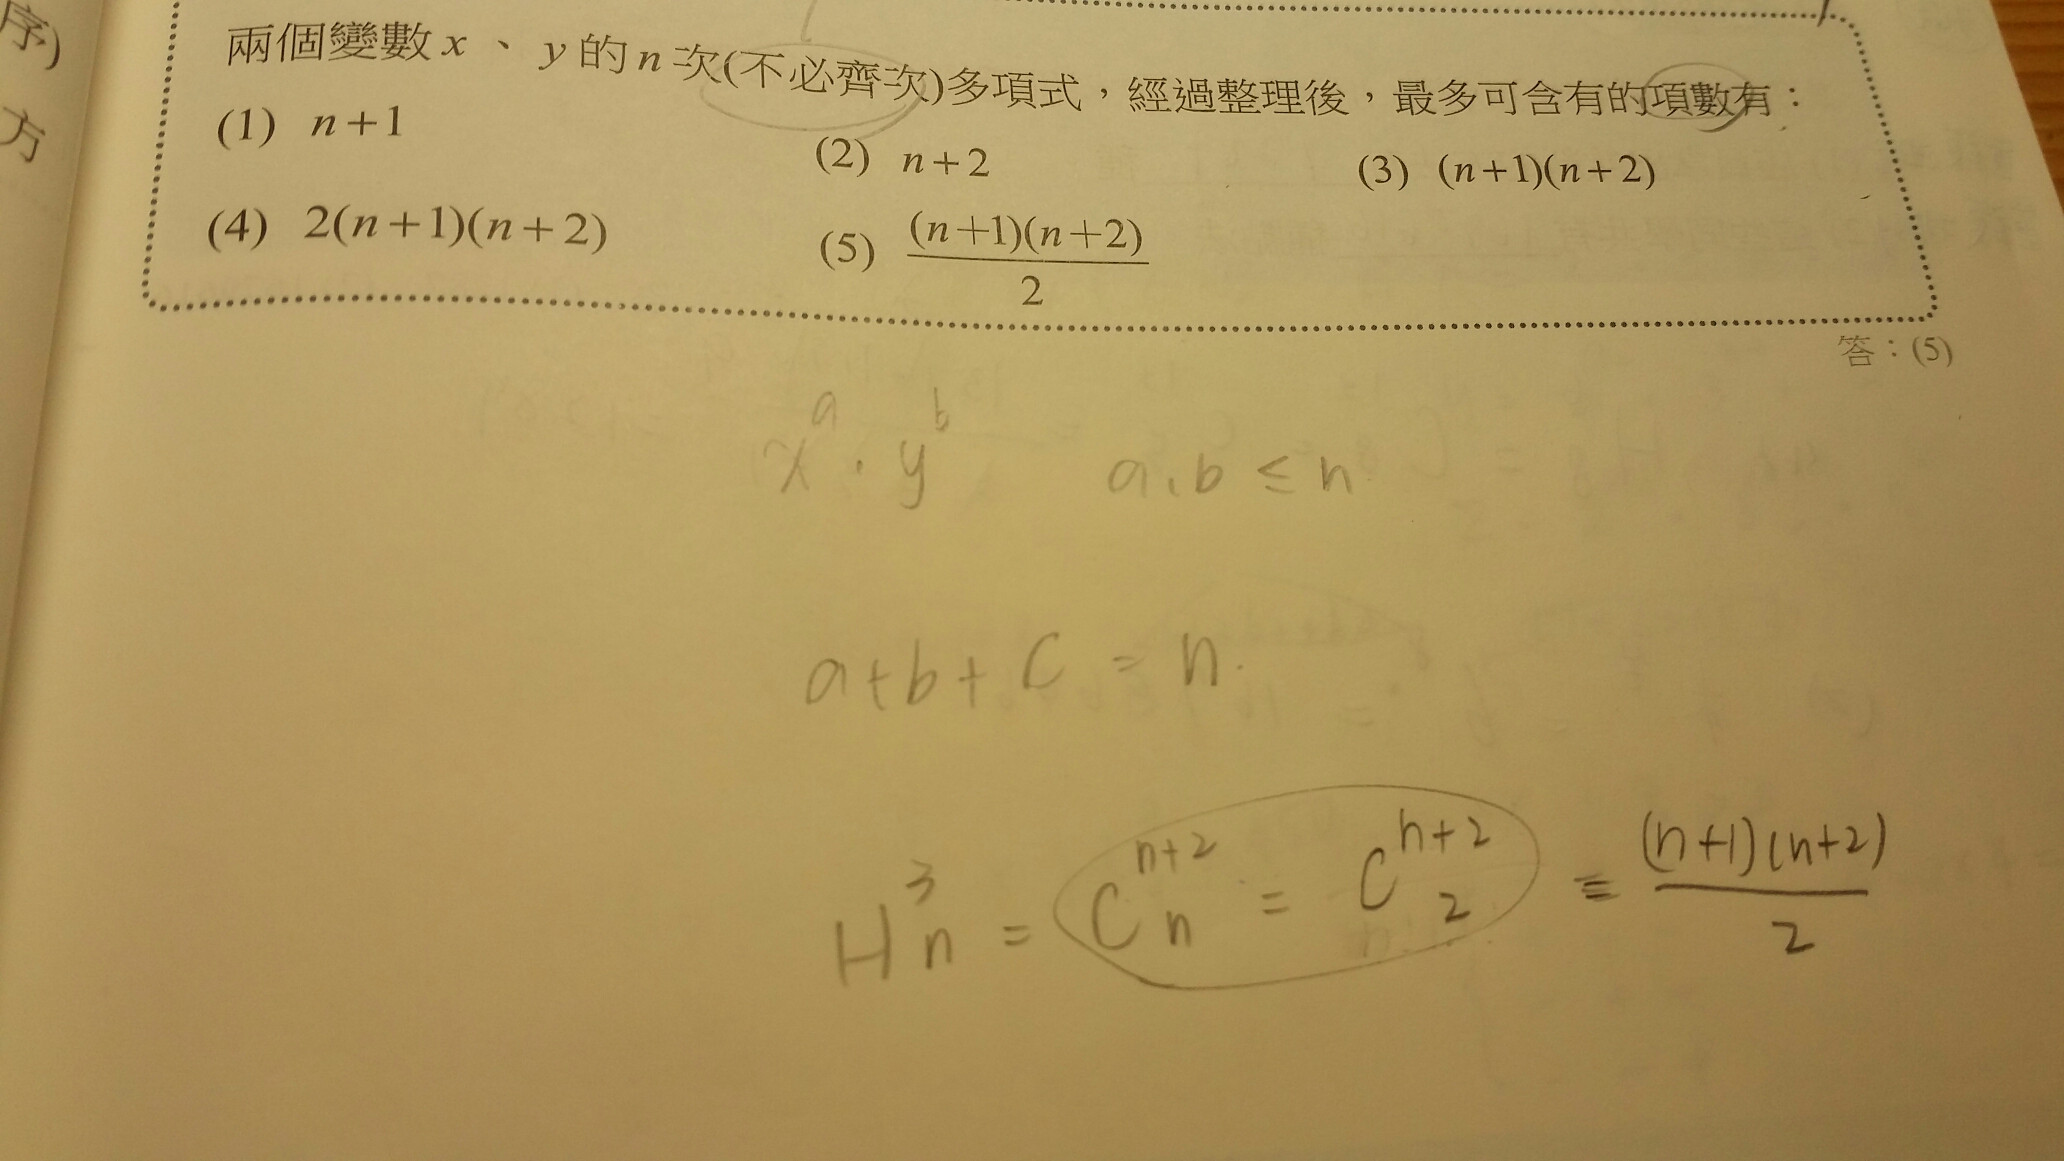 序)
方
兩個變數 x 、 y 的 n 次(不必齊次)多項式，經過整理後，最多可含有的項數有：
(1) n+1
(2) n+2
(3) (n+1)(n+2)
(4) 2(n+1)(n+2)
(5) (n+1)(n+2)
2
答：(5)
x^a · y^b  a, b ≤ n
a+b+c = n.
H^3_n = C^{n+2}_n = C^{n+2}_2 = (n+1)(n+2)
2